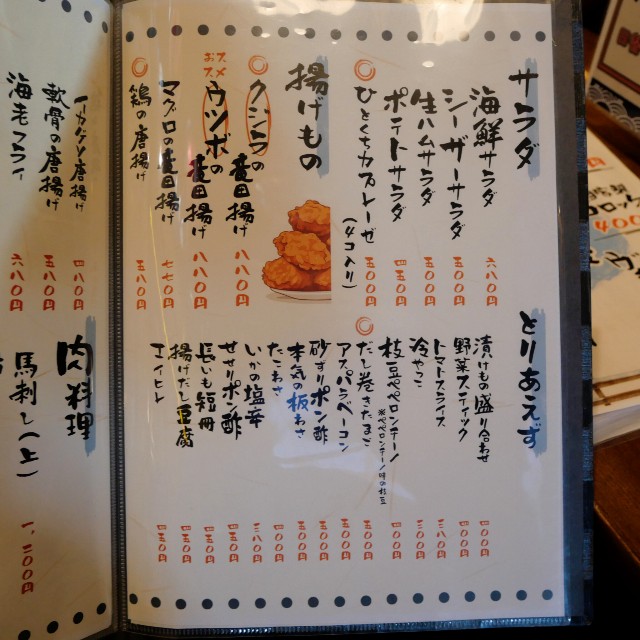 サラダ
海鮮サラダ 六八〇円
シーザーサラダ 五〇〇円
生ハムサラダ 五〇〇円
ポテトサラダ 四五〇円
ひとくちカプレーゼ(4コ入り) 五〇〇円
揚げもの
クジラの竜田揚げ 八八〇円
おススメ
ウツボの竜田揚げ 八八〇円
マグロの竜田揚げ 七七〇円
鶏の唐揚げ 五八〇円
とりあえず
漬けもの盛り合わせ 四〇〇円
野菜スティック 四〇〇円
トマトスライス 四〇〇円
冷やっこ 三〇〇円
枝豆ペペロンチーノ 四〇〇円
だし巻きたまご 五〇〇円
アスパラベーコン 五〇〇円
砂ずりポン酢 五〇〇円
本気の板わさ 五〇〇円
たこわさ 四〇〇円
いかの塩辛 三八〇円
せせりポン酢 四五〇円
長いも短冊 四五〇円
揚げだし豆腐 四八〇円
エイヒレ 四五〇円
イカゲソ唐揚げ 四八〇円
軟骨の唐揚げ 五八〇円
海老フライ 六八〇円
肉料理
馬刺し(上) 一、二〇〇円